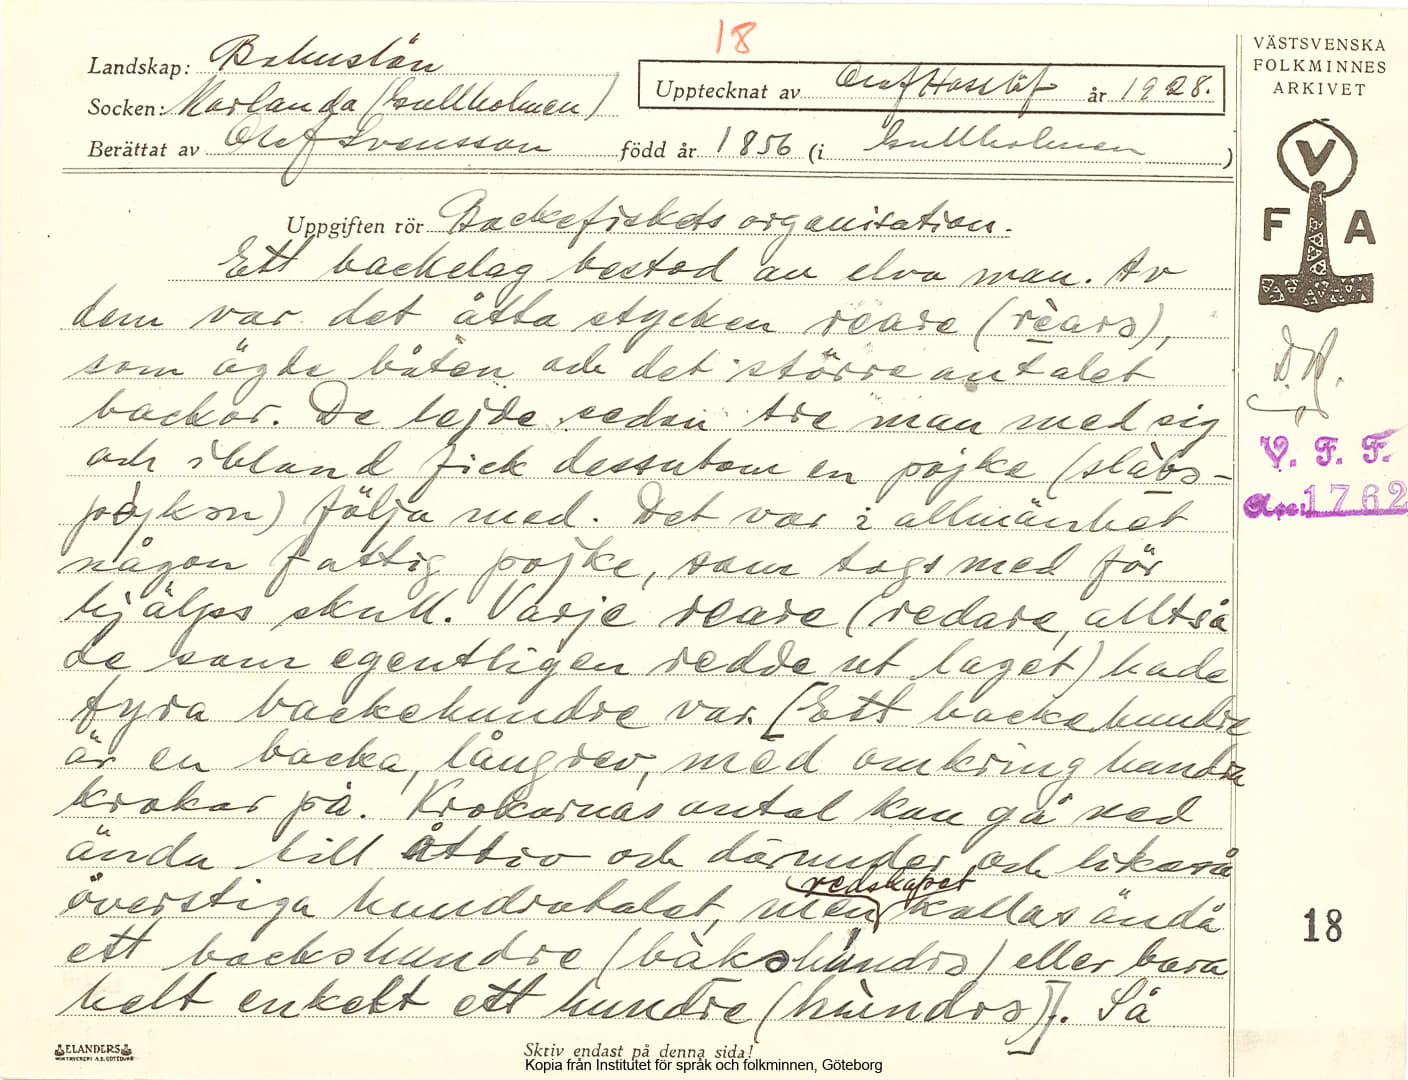 18
Landskap: Bohuslän
Socken: Morlanda (Gullholmen)
Upptecknat av Olof Hasslöf år 1928.
Berättat av Olof Svensson född år 1856 (i Gullholmen)
Uppgiften rör Backefiskets organisation.
Ett backelag bestod av elva man. Av
dem var det åtta stycken reare (rèarə),
som ägde båten och det större antalet
backor. De lejde sedan tre man med sig
och ibland fick dessutom en pojke (slàbs-
pòjkən) följa med. Det var i allmänhet
någon fattig pojke, som togs med för
hjälps skull. Varje reare (redare, alltså
de som egentligen redde ut laget) hade
fyra backehundre var. [Ett backehundre
är en backa, långrev, med omkring hundra
krokar på. Krokarnas antal kan gå ned
ända till åttio och därunder och likaså
överstiga hundratalet, men redskapet kallas ändå
ett backehundre (bàkəhùndrə) eller bara
helt enkelt ett hundre (hùndrə)]. Så
ELANDERS
Skriv endast på denna sida!
Kopia från Institutet för språk och folkminnen, Göteborg
VÄSTSVENSKA
FOLKMINNES
ARKIVET
V
F A
D.A.
V. F. F.
Acc. 1762
18